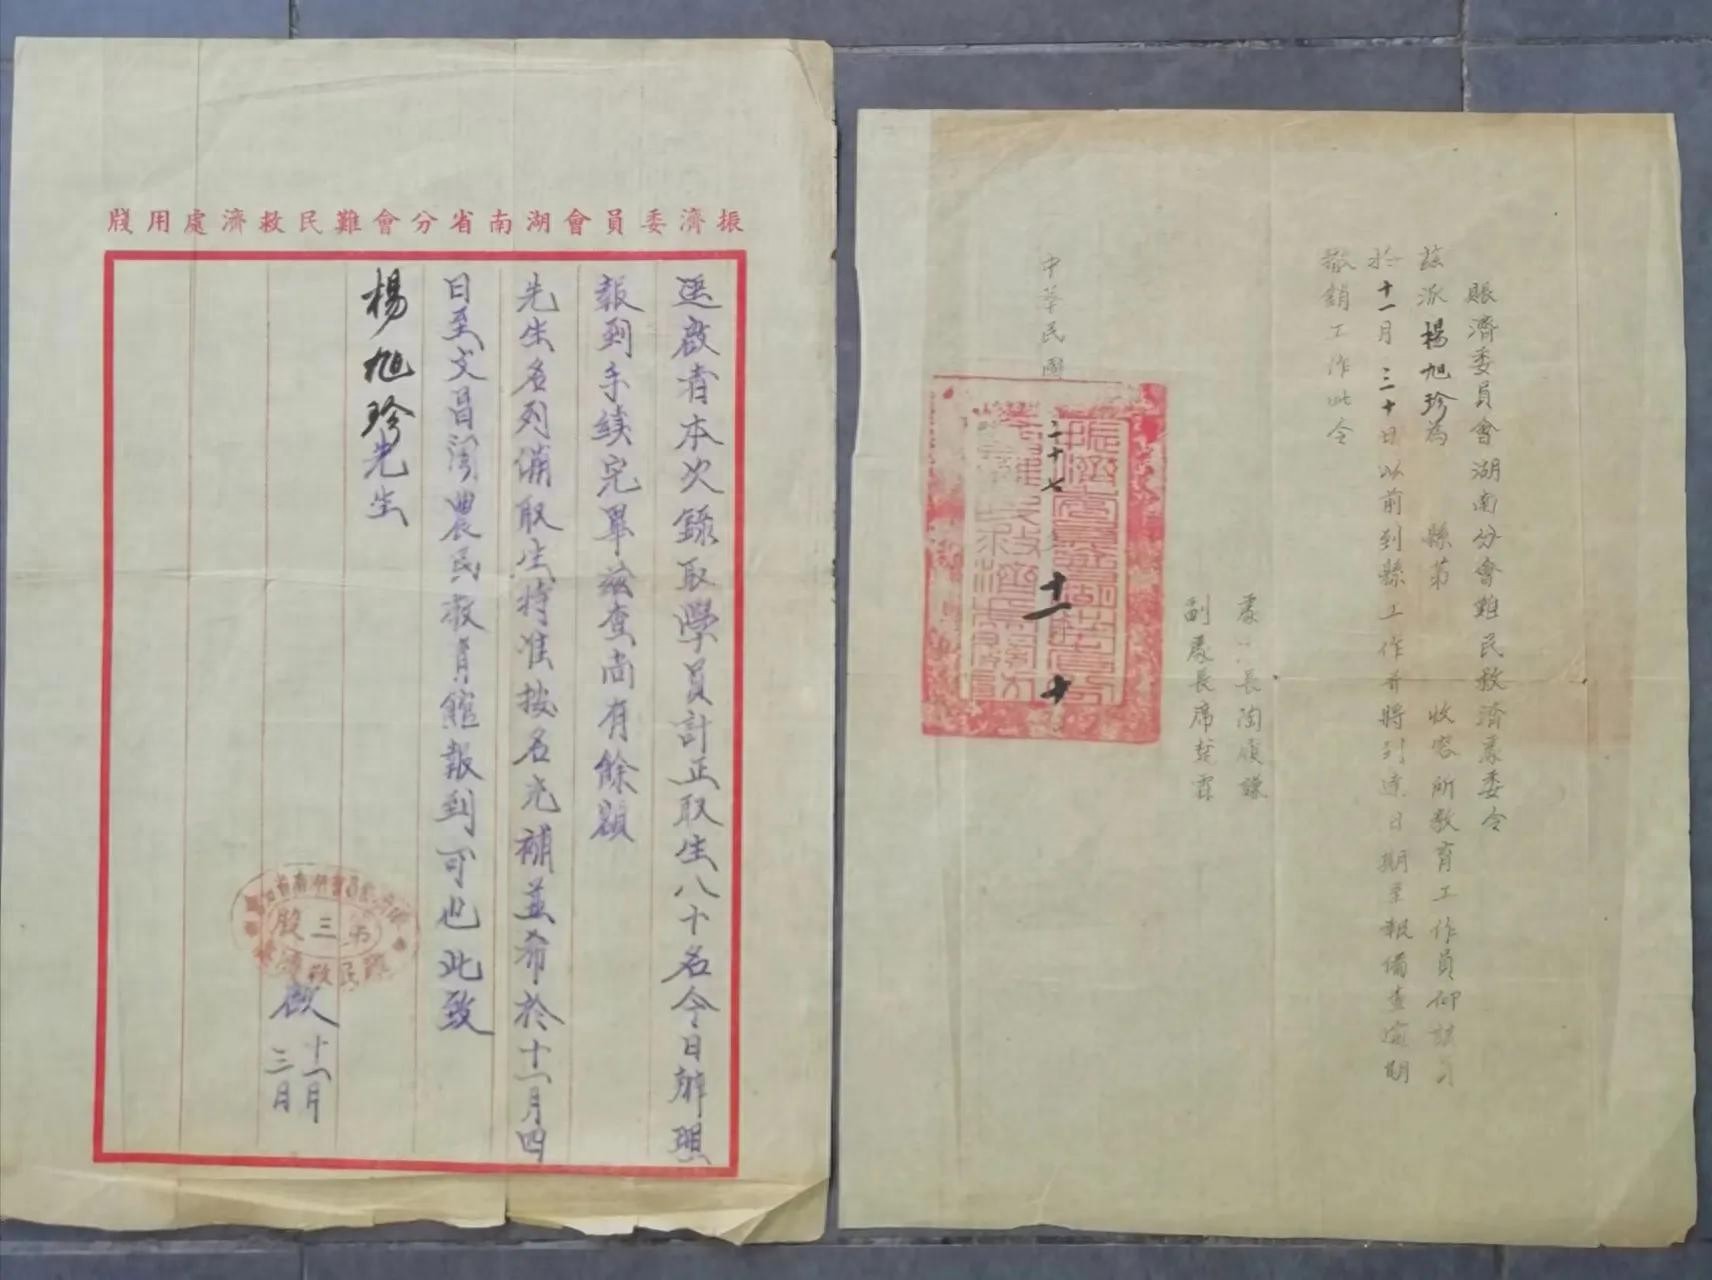 振濟委員會湖南省分會難民救濟處用牋
逕啟者本次錄取學員計正取生八十名今日辦理
報到手續完畢茲查尚有餘額
先生名列備取生特准按名充補並希於十一月四
日至文昌閣農民教育館報到可也此致
楊旭珍先生
第三股
啟
十一月
三日
賬濟委員會湖南分會難民救濟處委令
茲派楊旭珍為 縣第 收容所教育工作員仰該員
於十一月三十日以前到縣工作并將到達日期呈報備查逾期
撤銷工作此令
處長陶履謙
副處長席楚霖
中華民國二十七年十一十